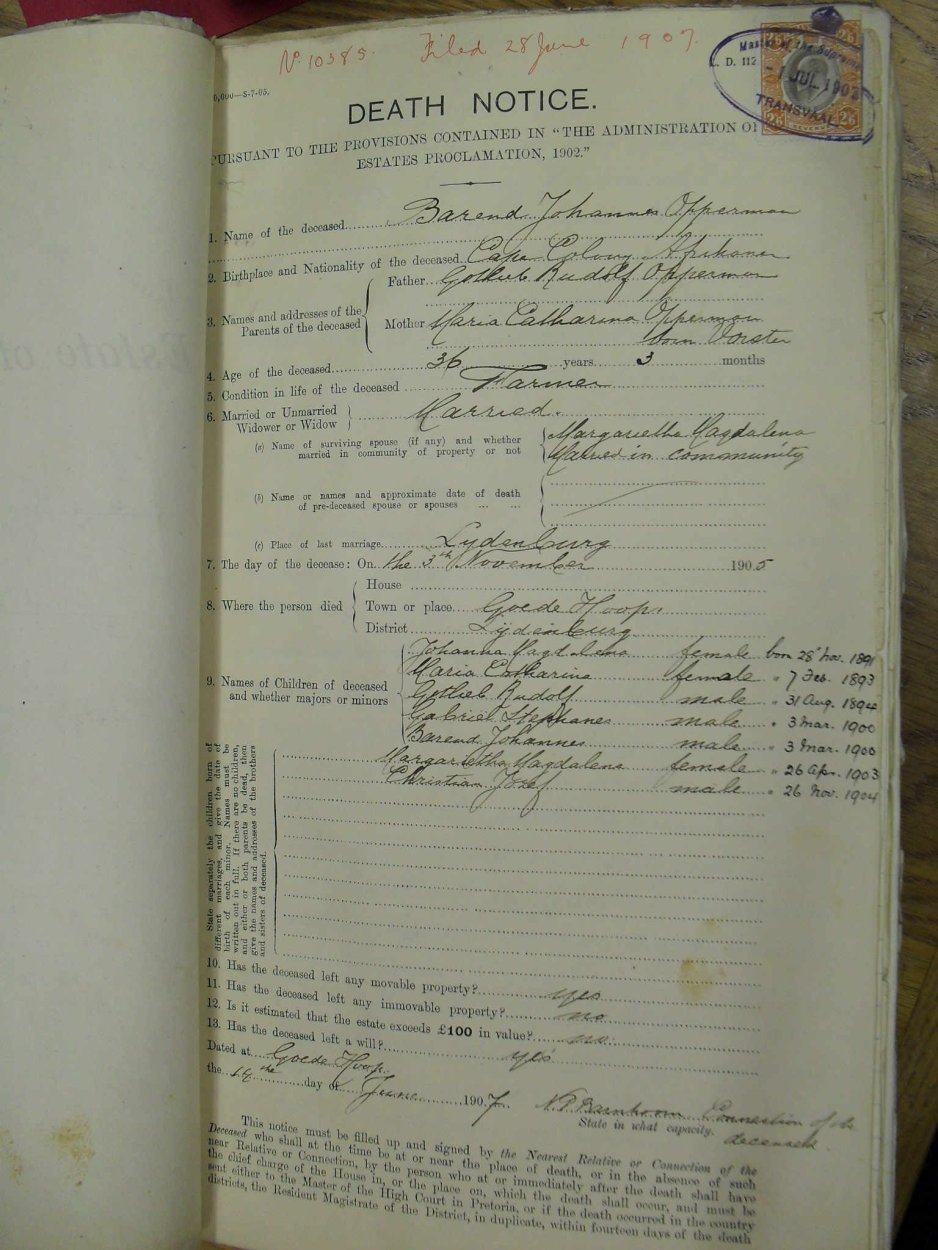 No. 10385. Filed 28 June 1907.
26 26
Master of the Supreme
L. D. 112
-1 JUL 190
TRANSVAAL
2/6 2/6
0,000—S-7-05.
DEATH NOTICE.
PURSUANT TO THE PROVISIONS CONTAINED IN "THE ADMINISTRATION OF
ESTATES PROCLAMATION, 1902."
1. Name of the deceased Barend Johannes Opperman
2. Birthplace and Nationality of the deceased Cape Colony Afrikaner
3. Names and addresses of the Parents of the deceased
Father Gotlieb Rudolf Opperman
Mother Maria Catharina Opperman
born Vorster
4. Age of the deceased 36 years 3 months
5. Condition in life of the deceased Farmer
6. Married or Unmarried
Widower or Widow Married.
(a) Name of surviving spouse (if any) and whether Margarietha Magdalena
married in community of property or not Married in community
(b) Name or names and approximate date of death
of pre-deceased spouse or spouses ... ...
(c) Place of last marriage Lydenburg
7. The day of the decease: On the 3th November 1905
8. Where the person died
House
Town or place Goede Hoop
District Lydenburg
9. Names of Children of deceased
and whether majors or minors
Johanna Magdalena female born 28 Nov. 1891
Maria Catharina female " 7 Feb. 1893
Gotlieb Rudolf male " 31 Aug. 1894
Gabriël Stephanes male " 3 Mar. 1900
Barend Johannes male " 3 Mar. 1900
Margarietha Magdalena female " 26 Apr. 1903
Christian Josef male " 26 Nov. 1904
State separately the children born of
different marriages, and give the date of
birth of each minor. Names must be
written out in full. If there are no children,
and either or both parents be dead, then
give the names and addresses of the brothers
and sisters of deceased.
10. Has the deceased left any movable property? yes
11. Has the deceased left any immovable property? no
12. Is it estimated that the estate exceeds £100 in value? no
13. Has the deceased left a will? yes
Dated at Goede Hoop
the 14th day of June 1907. Connection of the
State in what capacity. deceased
This notice must be filled up and signed by the Nearest Relative or Connection of the
Deceased who shall at the time be at or near the place of death, or in the absence of such
near Relative or Connection, by the person who at or immediately after the death shall have
the chief charge of the House in, or the place on, which the death shall occur, and must be
sent either to the Master of the High Court in Pretoria, or if the death occurred in the country
districts, the Resident Magistrate of the District, in duplicate, within fourteen days of the death